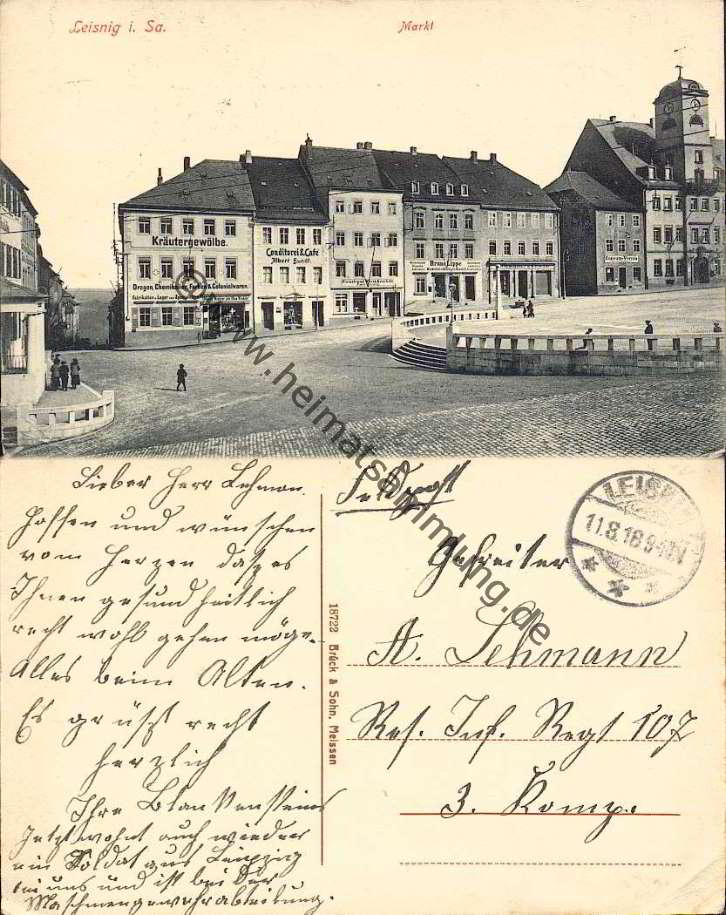 Leisnig i. Sa.
Markt
Kräutergewölbe.
Drogen, Chemikalien, Farben & Colonialwaren.
Conditorei & Café
Albert
Bruno Lippe
www.heimatsammlung.de
Lieber Herr Lehman.
Hoffen und wünschen
vom Herzen daß es
Ihnen gesundheitlich
recht wohl gehen möge.
Alles beim Alten.
Es grüßt recht
herzlich
Ihre Blankensteins
Jetzt wohnt auch wieder
ein Soldat aus Leipzig
bei uns und ist bei der
Maschinengewehrabteilung.
18722 Brück & Sohn, Meissen
Feldpost
LEISNIG
11.8.18
Gefreiter
A. Lehmann
Res. Inf. Regt 107
3. Komp.